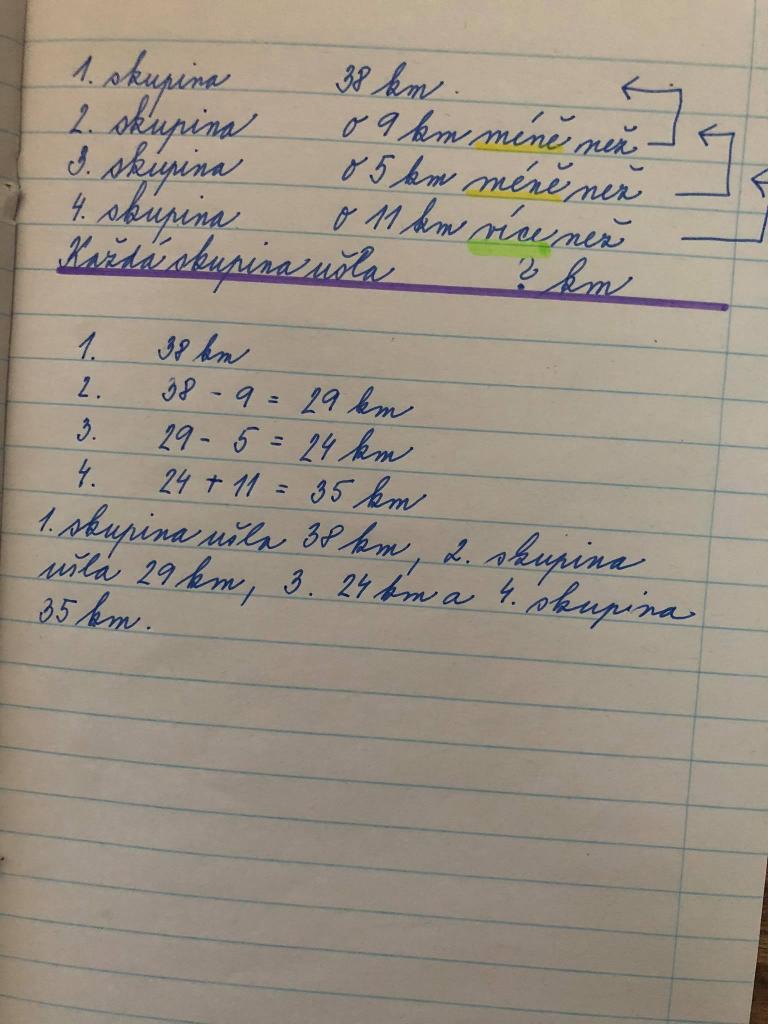 1. skupina 38 km.
2. skupina o 9 km méně než
3. skupina o 5 km méně než
4. skupina o 11 km více než
Každá skupina ušla ? km
1. 38 km
2. 38 - 9 = 29 km
3. 29 - 5 = 24 km
4. 24 + 11 = 35 km
1. skupina ušla 38 km, 2. skupina
ušla 29 km, 3. 24 km a 4. skupina
35 km.